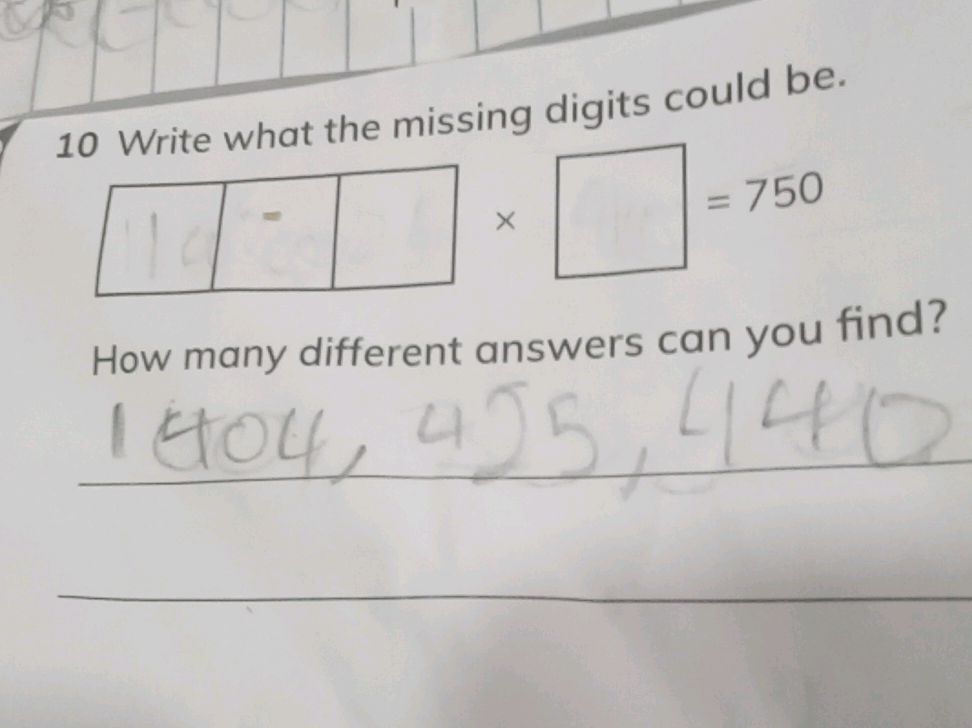 10 Write what the missing digits could be.
× = 750
How many different answers can you find?
1404, 455, 4140